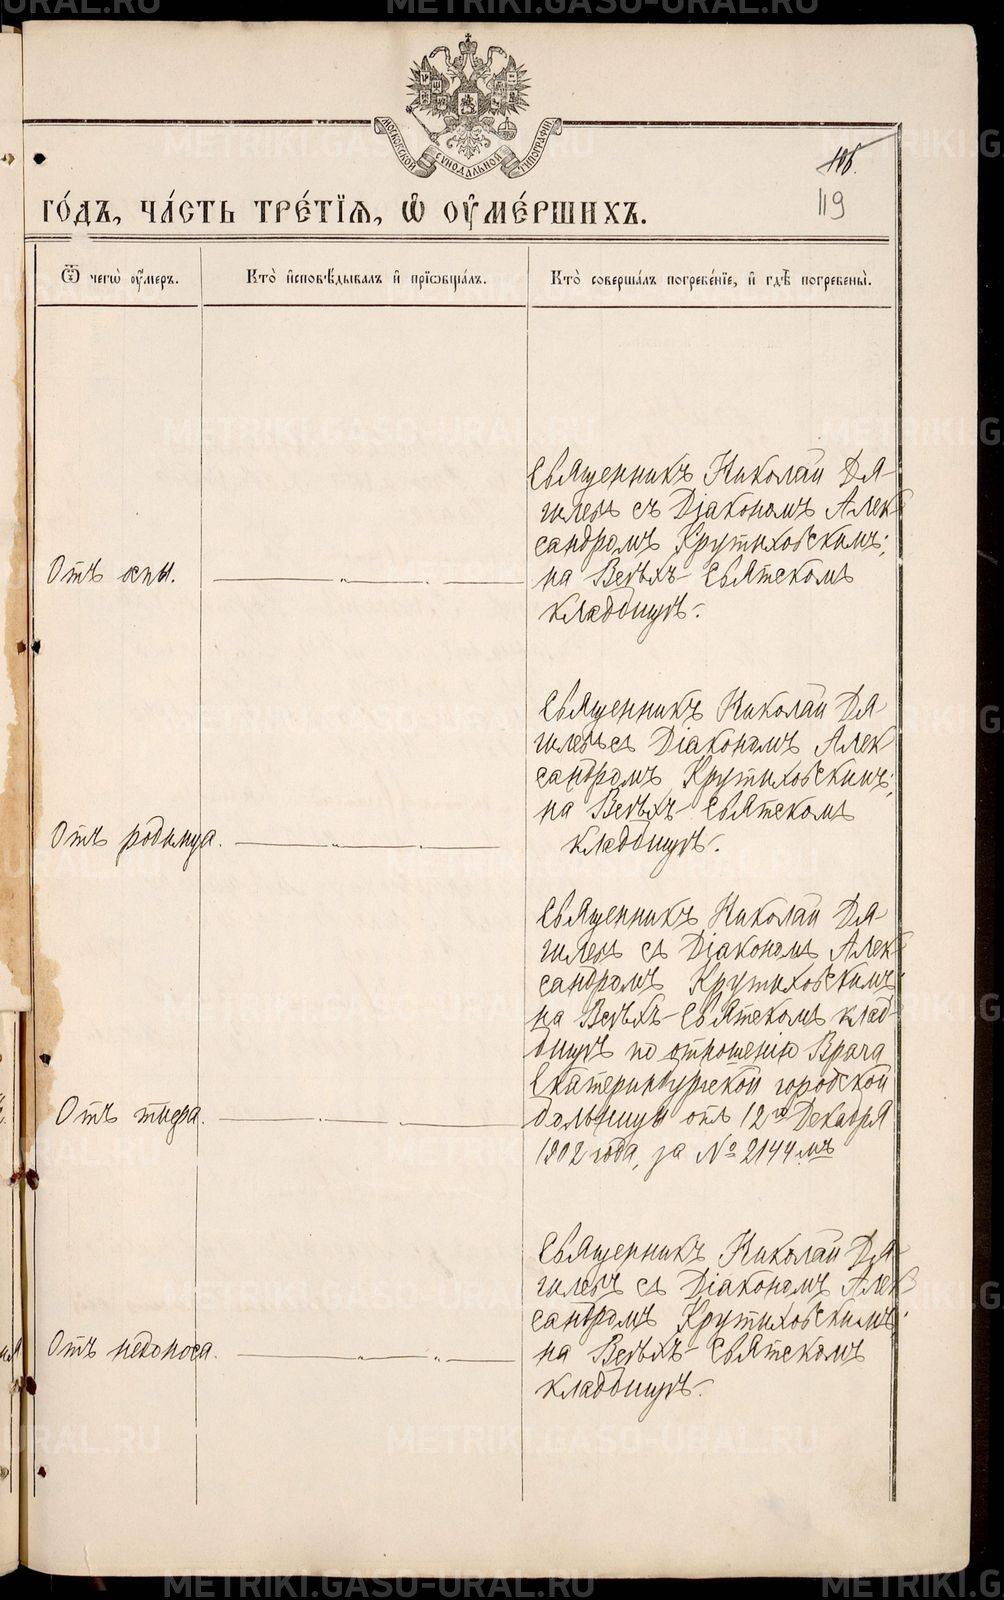 METRIKI.GASO-URAL.RU
МОСКОВСКОЙ СѴНОДАЛЬНОЙ ТИПОГРАФІИ
105.
119
го́дъ, ча́сть тре́тїѧ, ѡ҆ ᲂу҆ме́ршихъ.
Ѿ чегѡ̀ ᲂу҆́меръ.
Кто̀ и҆сповѣ́дывалъ и҆ прїѡбща́лъ.
Кто̀ соверша́лъ погребе́нїе, и҆ гдѣ̀ погребены̀.
Священникъ Николай Дя-
гилевъ съ Діакономъ Алек
сандромъ Крутиховскимъ;
Отъ оспы.
на Всѣхъ-Святскомъ
кладбищѣ.
Священникъ Николай Дя
гилевъ съ Діакономъ Алек
сандромъ Крутиховскимъ;
на Всѣхъ-Святскомъ
Отъ родимца.
кладбищѣ.
Священникъ Николай Дя-
гилевъ съ Діакономъ Алек-
сандромъ Крутиховскимъ;
на Всѣхъ-Святскомъ клад-
бищѣ по отношенію Врача
Екатеринбургской городской
Отъ тифа.
больницы отъ 12го Декабря
1902 года, за № 2144мъ
Священникъ Николай Дя-
гилевъ съ Діакономъ Алек-
сандромъ Крутиховскимъ;
Отъ недоноса.
на Всѣхъ-Святскомъ
кладбищѣ.